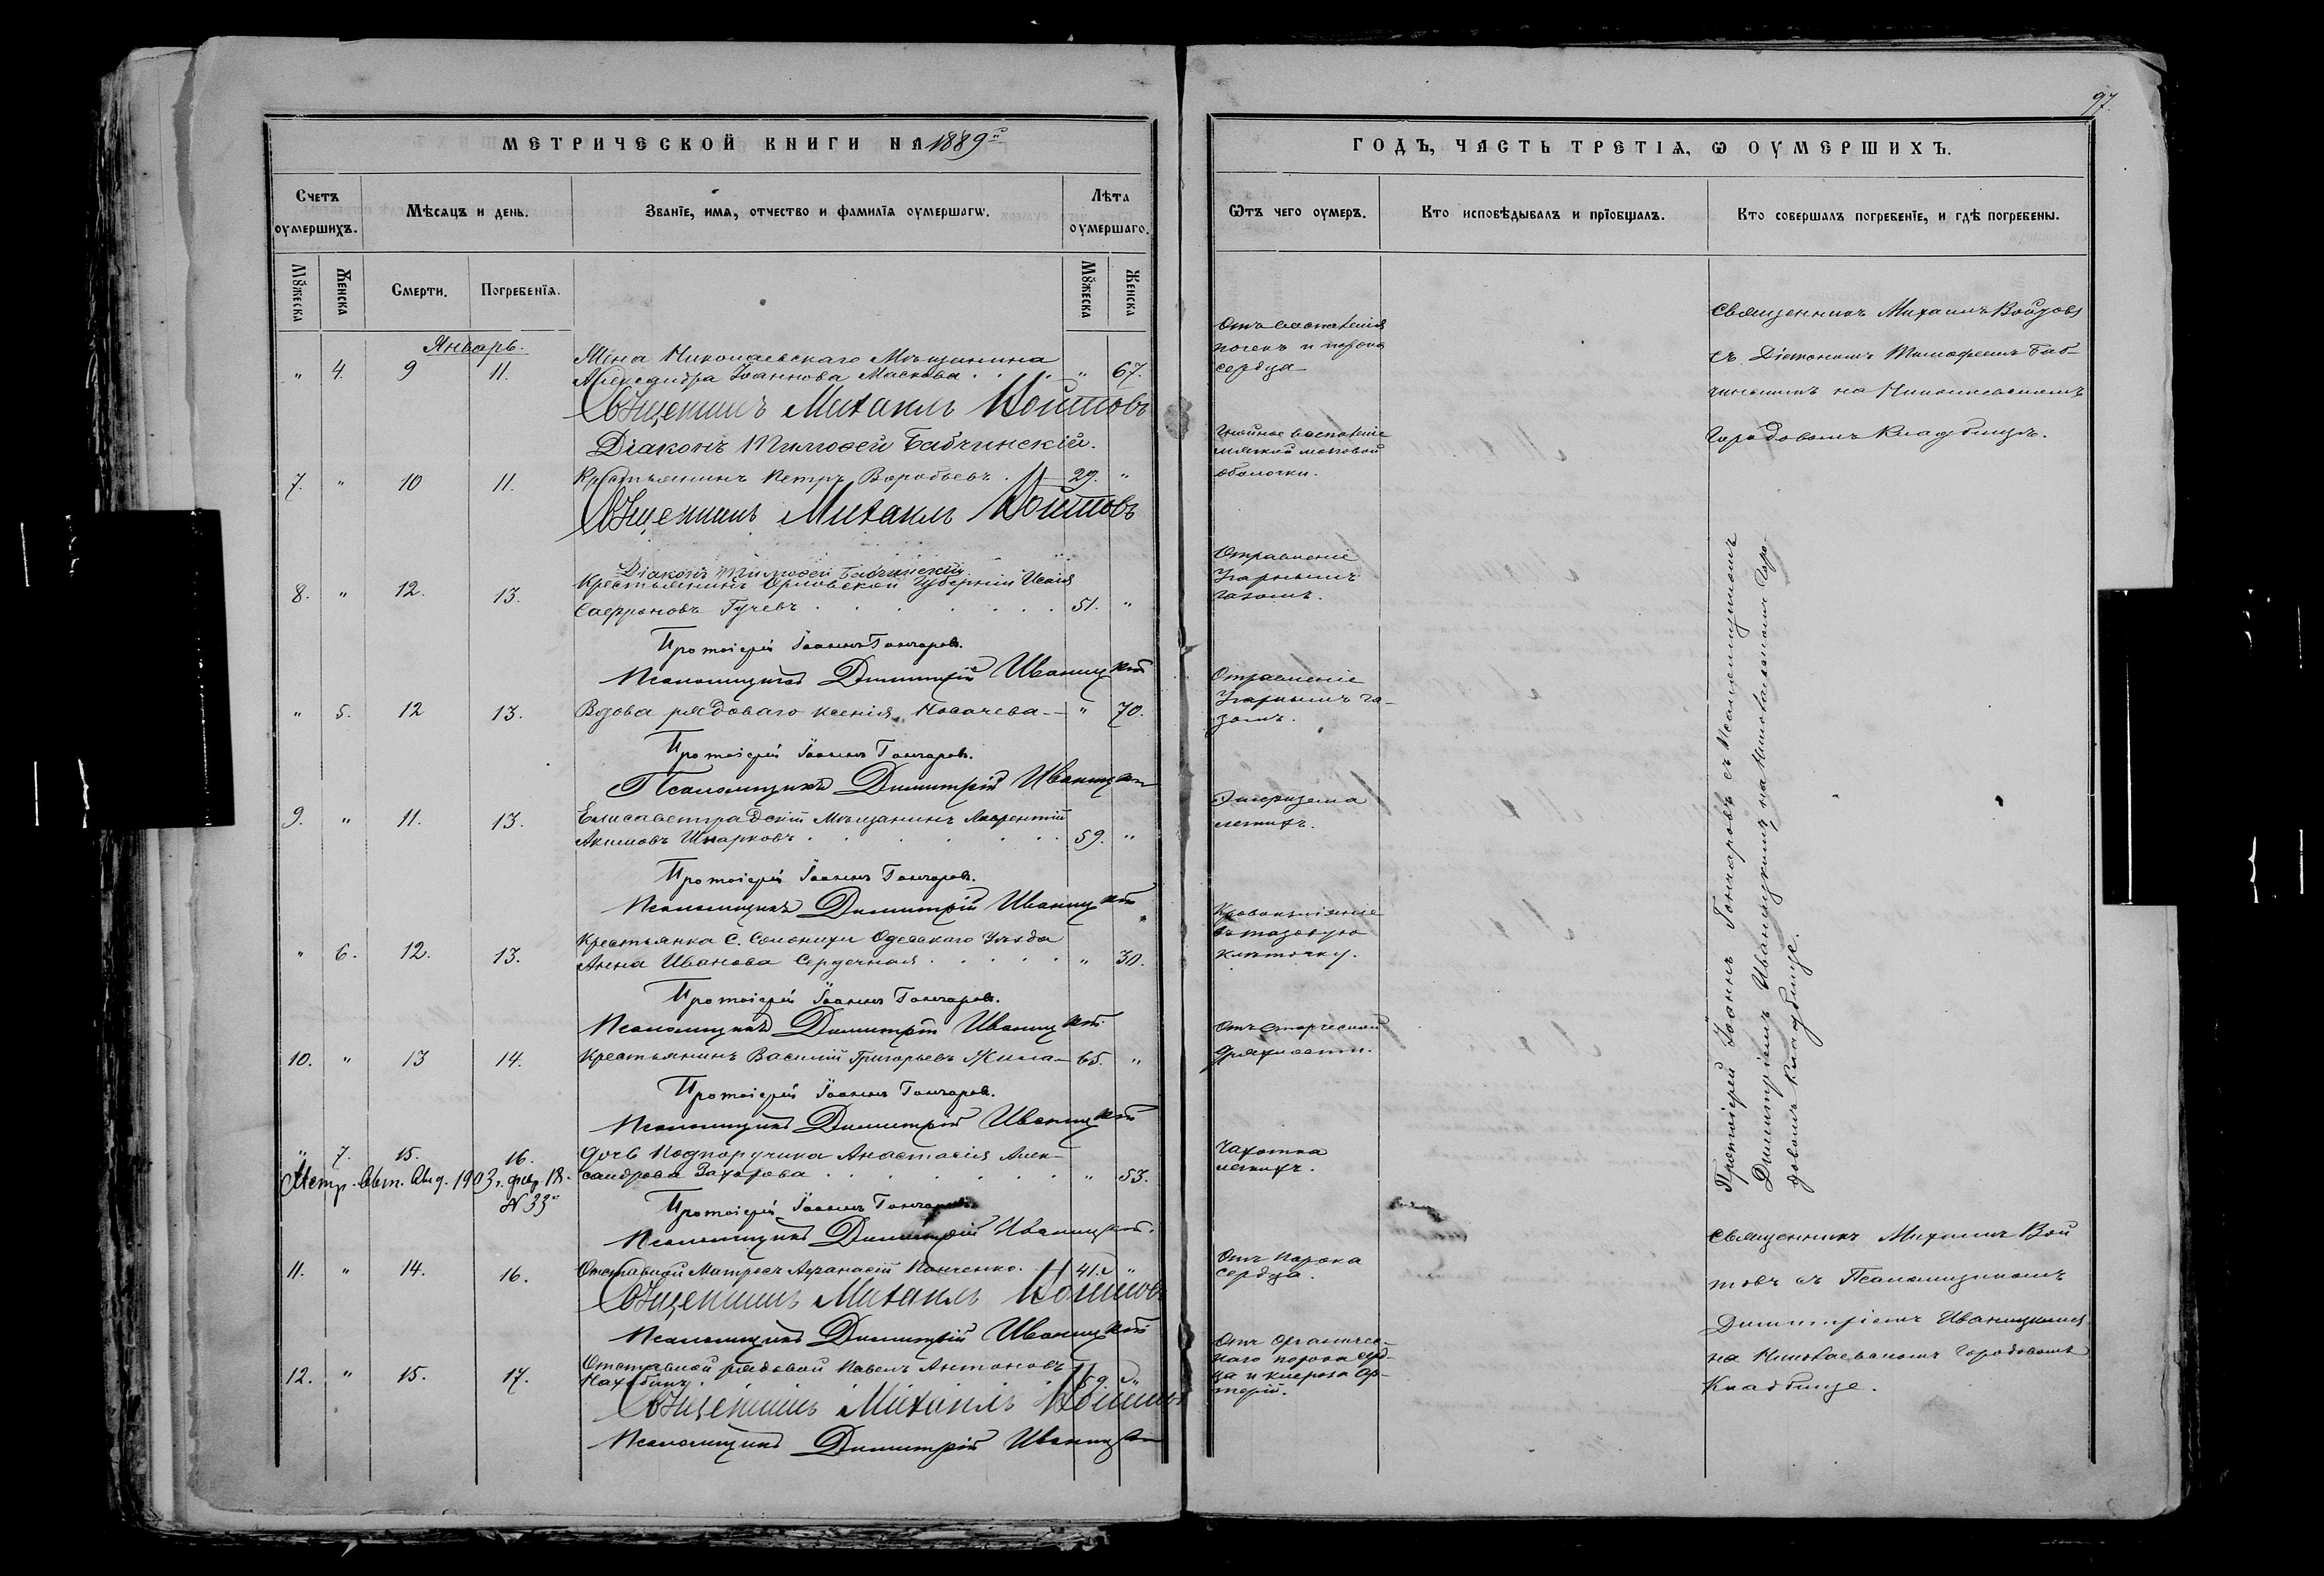 МЕТРИЧЕСКОЙ КНИГИ НА 1889й
Счетъ оумершихъ.
Мѣсяцъ и день.
Званіе, имя, отчество и фамилія оумершагѡ.
Лѣта оумершаго.
Мꙋжеска
Женска
Смерти.
Погребенія.
Мꙋжеска
Женска
Январь.
" 4. 9 11. Жена Николаевскаго Мѣщанина
Александра Іоаннова Маскова " 67.
Священникъ Михаилъ Войтовъ
Діаконъ Тимоѳей Бабчинскій.
7. " 10 11. Крестьянинъ Петръ Воробьевъ 29. "
Священникъ Михаилъ Войтовъ
Діаконъ Тимоѳей Бабчинскій
8. " 12. 13. Крестьянинъ Орловской Губерніи Исаія
Сафроновъ Гучевъ 51. "
Протоіерей Іоаннъ Гончаровъ.
Псаломщикъ Димитрій Иваницкій
" 5. 12 13. Вдова рядоваго Ксенія Носачева " 70.
Протоіерей Іоаннъ Гончаровъ.
Псаломщикъ Димитрій Иваницкій
9. " 11. 13. Елисаветградскій Мѣщанинъ Лаврентій
Акимовъ Шкарковъ 59. "
Протоіерей Іоаннъ Гончаровъ.
Псаломщикъ Димитрій Иваницкій
" 6. 12. 13. Крестьянка С. Солонихи Одесскаго Уѣзда
Анна Иванова Сердечная " 30.
Протоіерей Іоаннъ Гончаровъ.
Псаломщикъ Димитрій Иваницкій
10. " 13 14. Крестьянинъ Василій Григорьевъ Жила 65. "
Протоіерей Іоаннъ Гончаровъ.
Псаломщикъ Димитрій Иваницкій
" 7. 15. 16. Дочь Подпоручика Анастасія Алек-
сандрова Захарова " 53.
Метр. Свт. Выд. 1903 г. февр. 18.
№ 33
Протоіерей Іоаннъ Гончаровъ.
Псаломщикъ Димитрій Иваницкій.
11. " 14. 16. Отставной Матросъ Аѳанасій Панченко. 41. "
Священникъ Михаилъ Войтовъ
Псаломщикъ Димитрій Иваницкій
12. " 15. 17. Отставной рядовой Павелъ Антоновъ
59. "
Священникъ Михаилъ Войтовъ
Псаломщикъ Димитрій Иваницкій
97.
ГОДЪ, ЧАСТЬ ТРЕТІЯ, Ѡ ОУМЕРШИХЪ.
Ѿтъ чего оумеръ.
Кто исповѣдывалъ и пріобщалъ.
Кто совершалъ погребеніе, и гдѣ погребены.
Отъ воспаленія
почекъ и порока
сердца
Гнойное воспаленіе
мягкой мозговой
оболочки.
Отравленіе
Угарнымъ
газомъ.
Отравленіе
Угарнымъ га-
зомъ.
Эмфизема
легкихъ.
Кровоизліяніе
въ тазовую
клѣтчку.
Отъ старческой
дряхлости.
Чахотка
легкихъ.
Отъ порока
Сердца.
Отъ Органичес-
каго порока серд-
ца и склероза Ар-
терій.
Священникъ Михаилъ Войтовъ
съ Діакономъ Тимоѳеемъ Баб-
чинскимъ на Николаевскомъ
Городовомъ Кладбищѣ.
Протоіерей Іоаннъ Гончаровъ съ Псаломщикомъ
Димитріемъ Иваницкимъ на Николаевскомъ Горо-
довомъ Кладбище.
Священникъ Михаилъ Вой
товъ съ Псаломщикомъ
Димитріемъ Иваницкимъ
на Николаевскомъ Городовомъ
Кладбище.